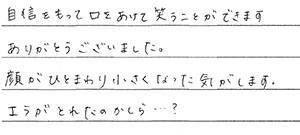 自信をもって口をあけて笑うことができます
ありがとうございました。
顔がひとまわり小さくなった気がします.
エラがとれたのかしら…?